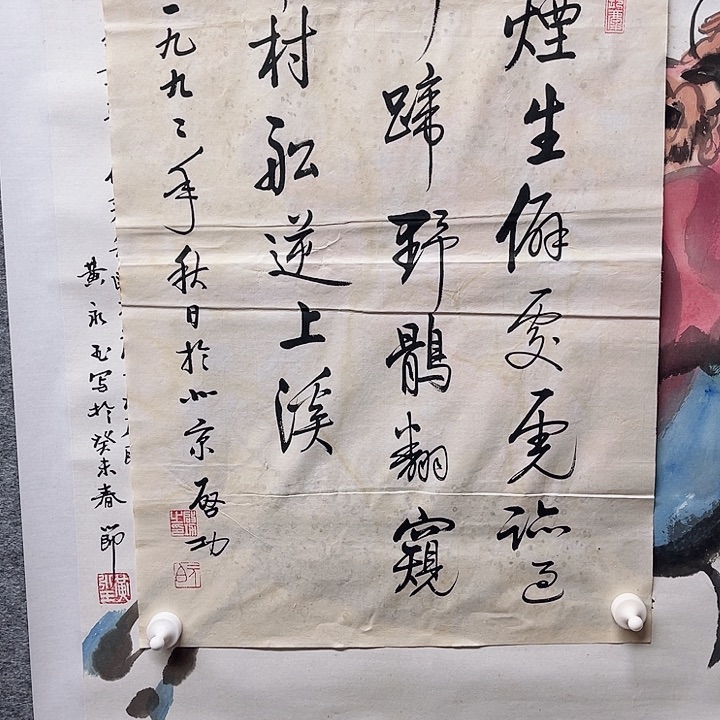 煙生僻處虎迹過
蹄野鶻翻窺
村船逆上溪
一九九二年秋日於北京 啓功
黃永玉写於癸未春節